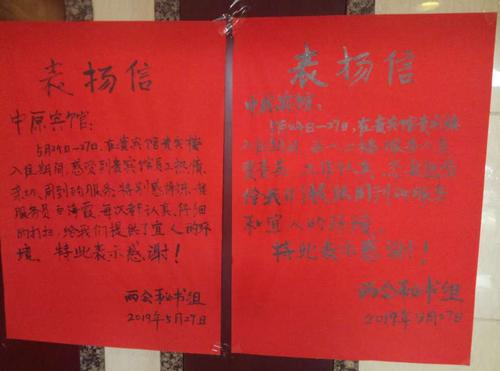 表扬信
中原宾馆:
5月24日—27日,在贵宾馆贵宾楼
入住期间,感受到贵宾馆员工热情
亲切、周到的服务,特别感谢
服务员 海霞,每次都认真、仔细
的打扫,给我们提供了宜人的环
境、特此表示感谢!
两会秘书组
2019年5月27日
表扬信
中原宾馆:
5月24日—27日,在贵宾馆贵宾楼
入住期间, 楼服务人员
认真、
给我们提供 周到的服务
和宜人的环境、
特此表示感谢!
两会秘书组
2019年5月27日